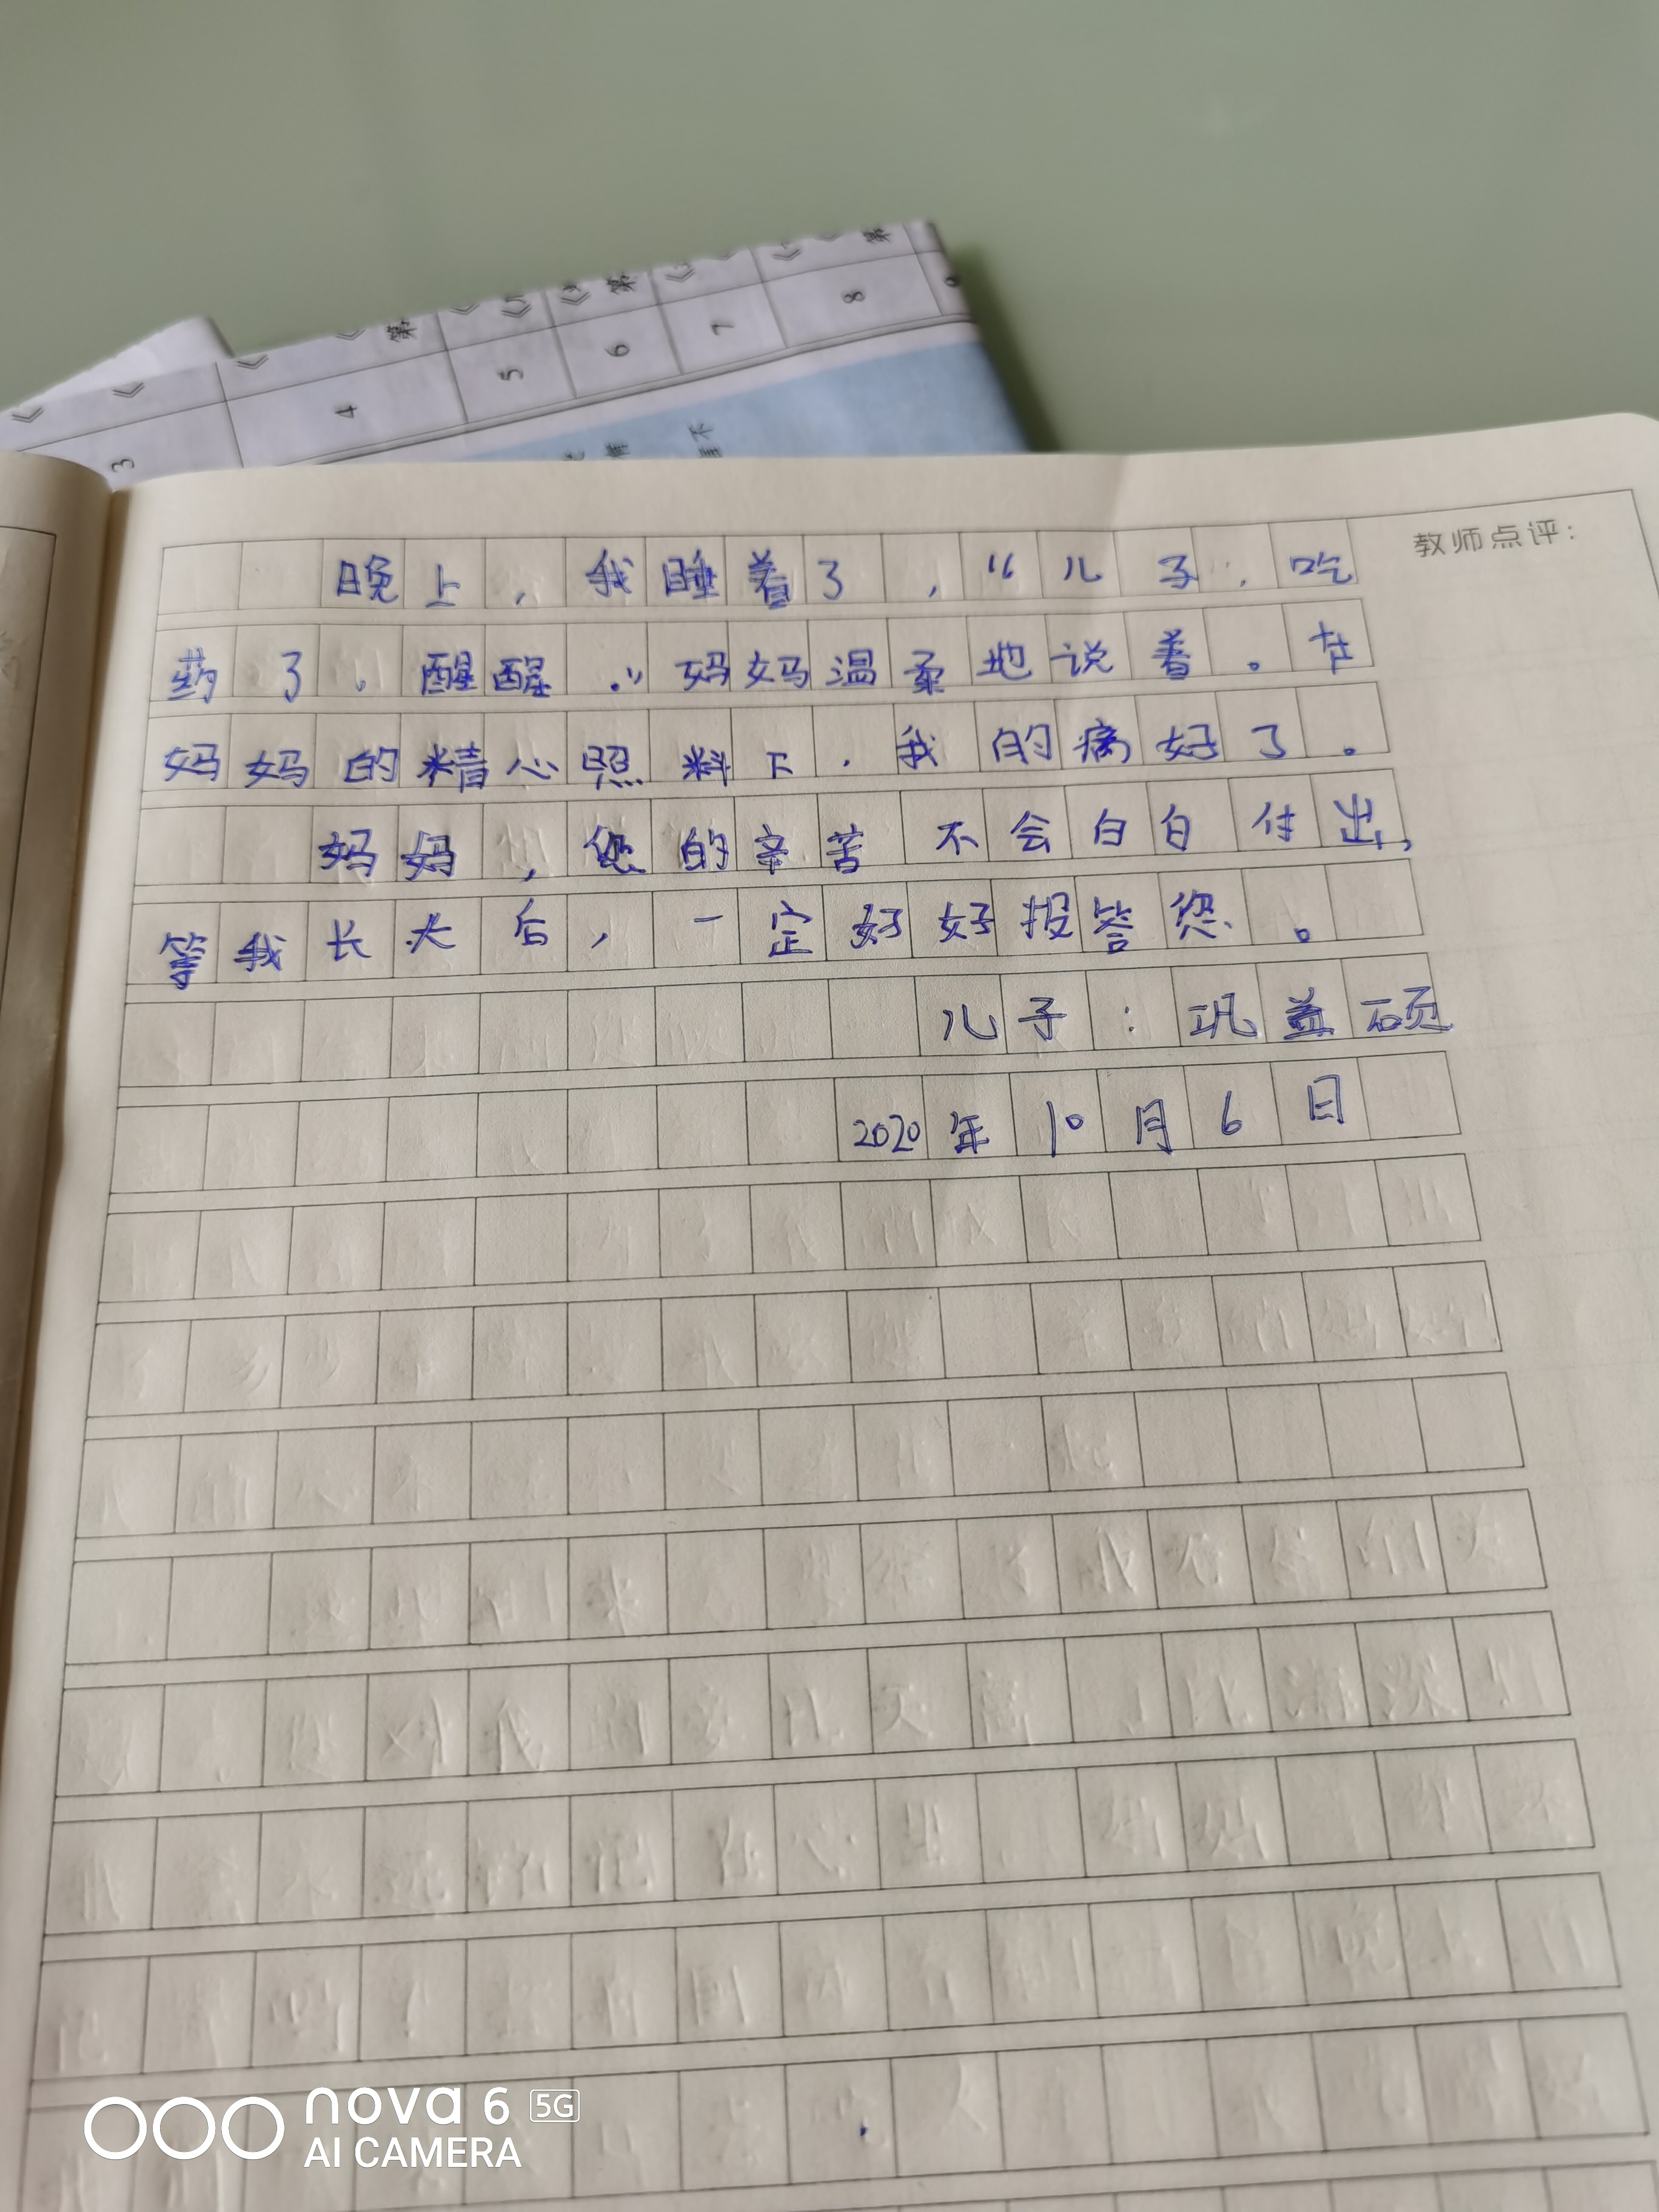 第
第
第
3
4
5
6
7
8
教师点评：
晚上，我睡着了，“儿子，吃
药了。醒醒。”妈妈温柔地说着。在
妈妈的精心照料下，我的病好了。
妈妈，您的辛苦不会白白付出，
等我长大后，一定好好报答您。
儿子：巩益硕
2020年10月6日
nova 6 5G
AI CAMERA